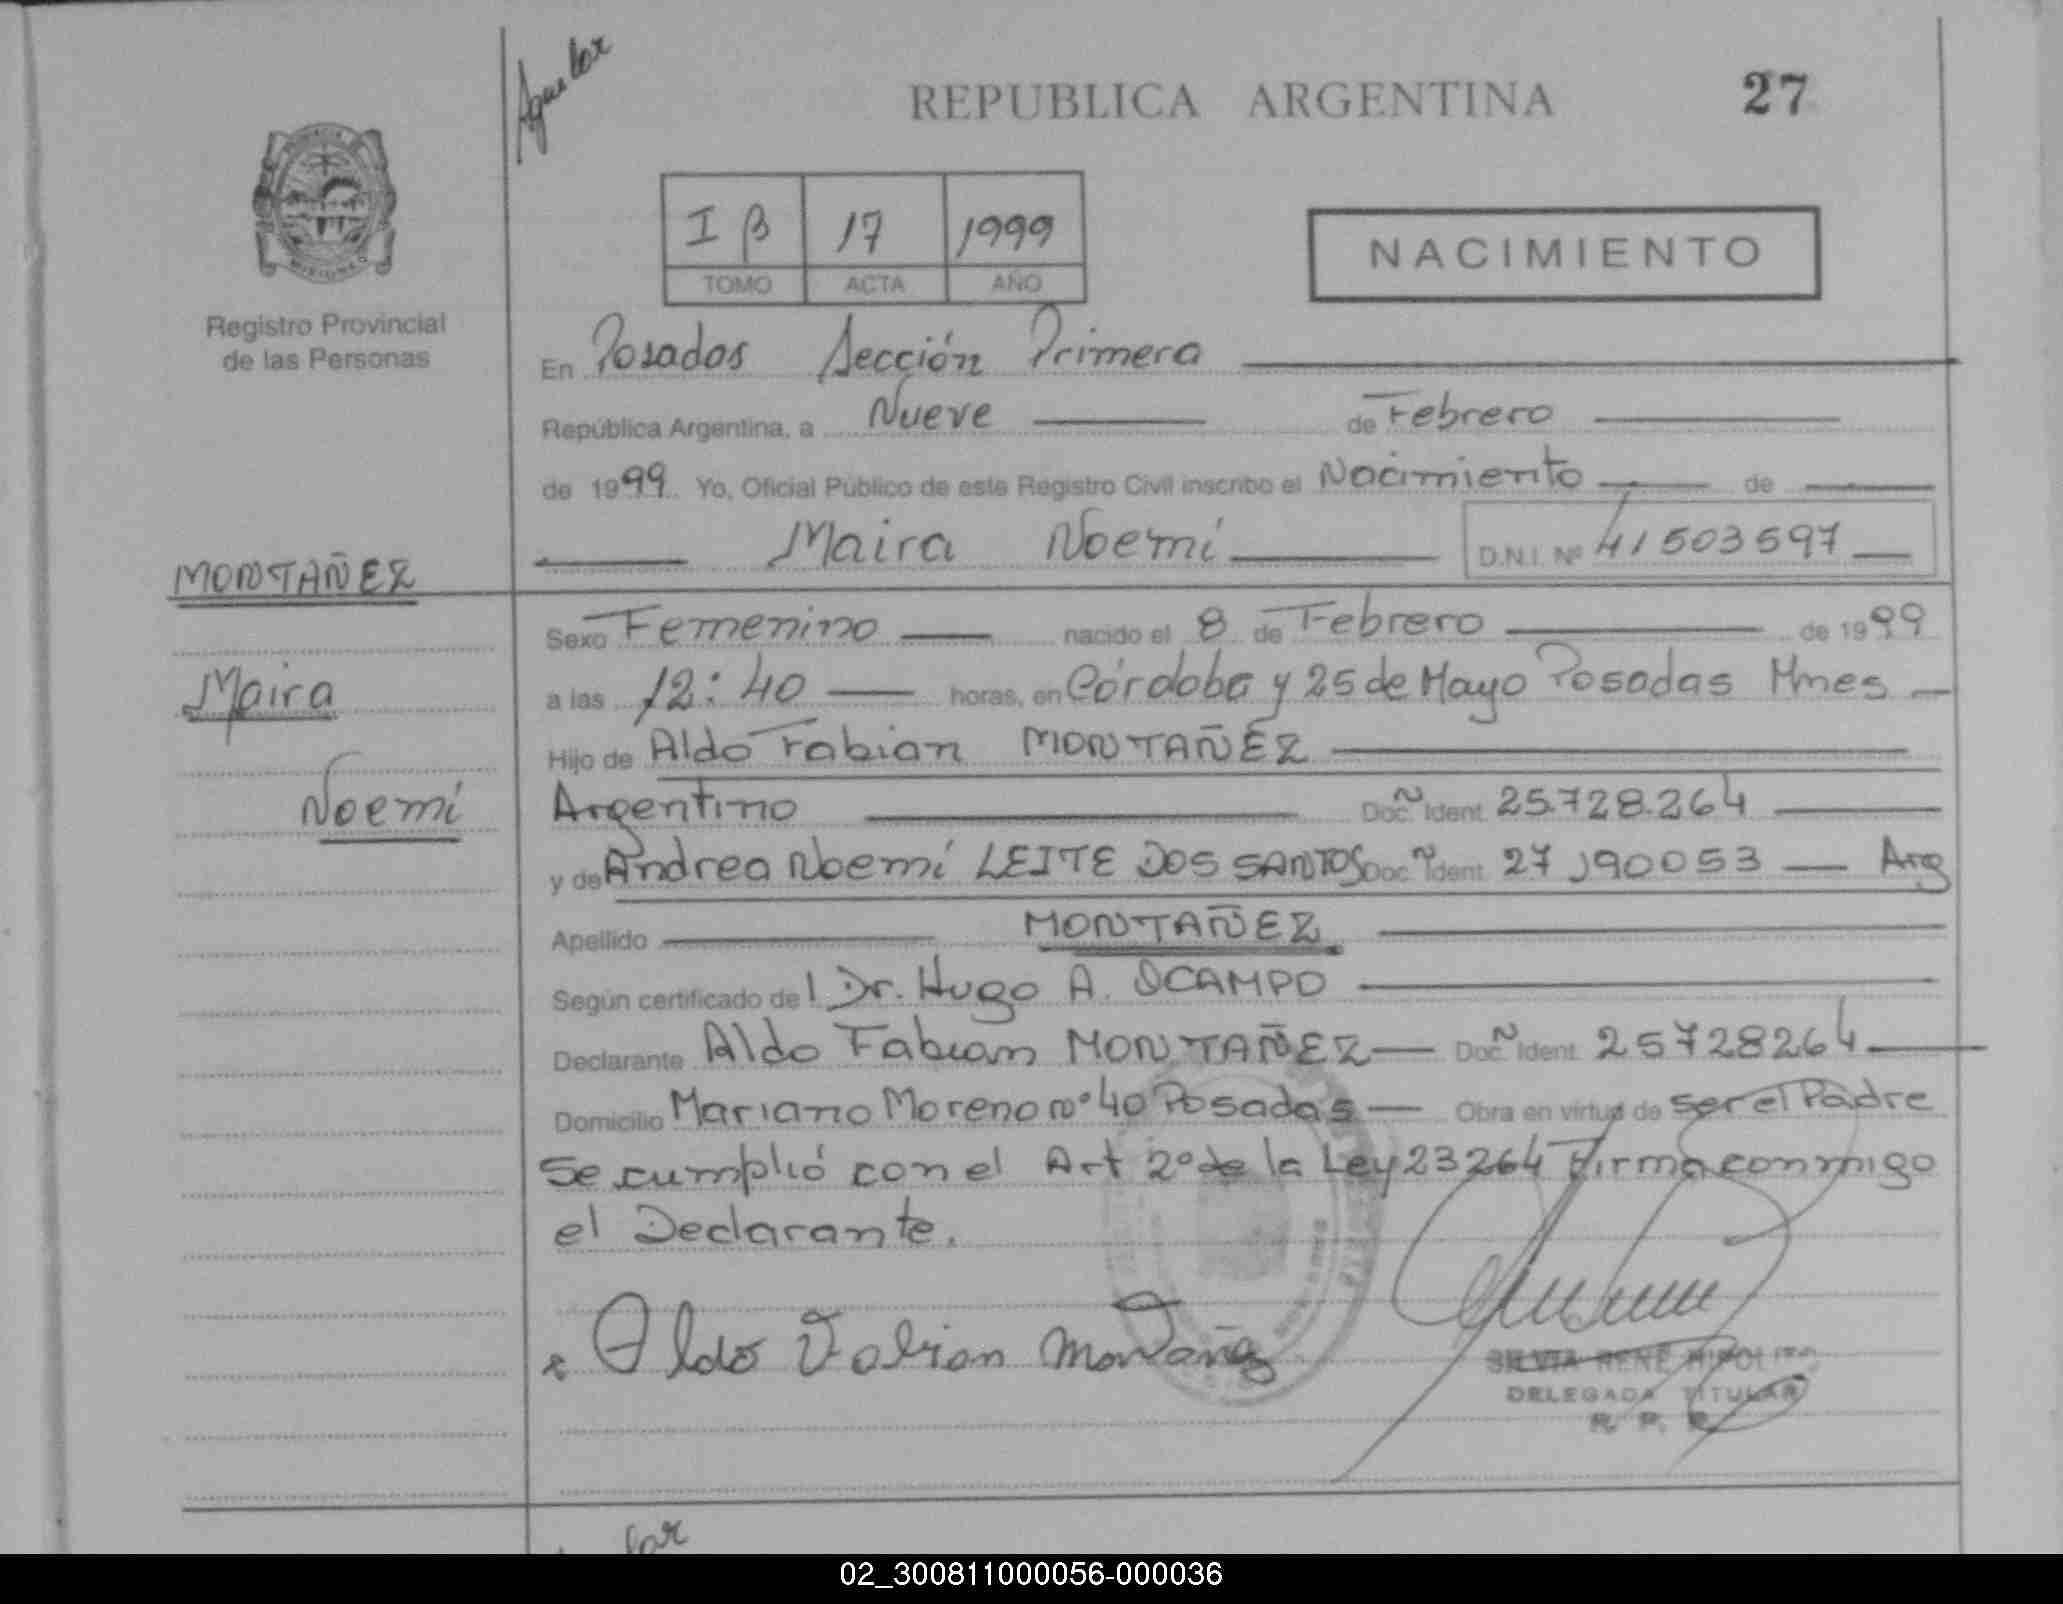 Aguilar
REPUBLICA ARGENTINA 27
I B 17 1999
TOMO ACTA AÑO
NACIMIENTO
MISIONES
Registro Provincial
de las Personas
En Posadas Sección Primera
República Argentina, a Nueve de Febrero
de 1999 Yo, Oficial Público de este Registro Civil inscribo el Nacimiento de
Maira Noemí D.N.I. Nº 41503597
MONTAÑEZ
Maira
Noemí
Sexo Femenino nacido el 8 de Febrero de 1999
a las 12:40 horas, en Córdoba y 25 de Mayo Posadas Mnes
Hijo de Aldo Fabian MONTAÑEZ
Argentino Doc. Ident. 25.728.264
y de Andrea Noemí LEITE DOS SANTOS Doc. Ident. 27190053 Arg
Apellido MONTAÑEZ
Según certificado del Dr. Hugo A. OCAMPO
Declarante Aldo Fabian MONTAÑEZ Doc. Ident. 25728264
Domicilio Mariano Moreno nº 40 Posadas Obra en virtud de ser el Padre
Se cumplió con el Art 2º de la Ley 23264 Firma conmigo
el Declarante.
Aldo Fabian Montañez
SILVIA RENE HIPOLITO
DELEGADA TITULAR
R. P. P.
lar
02_300811000056-000036